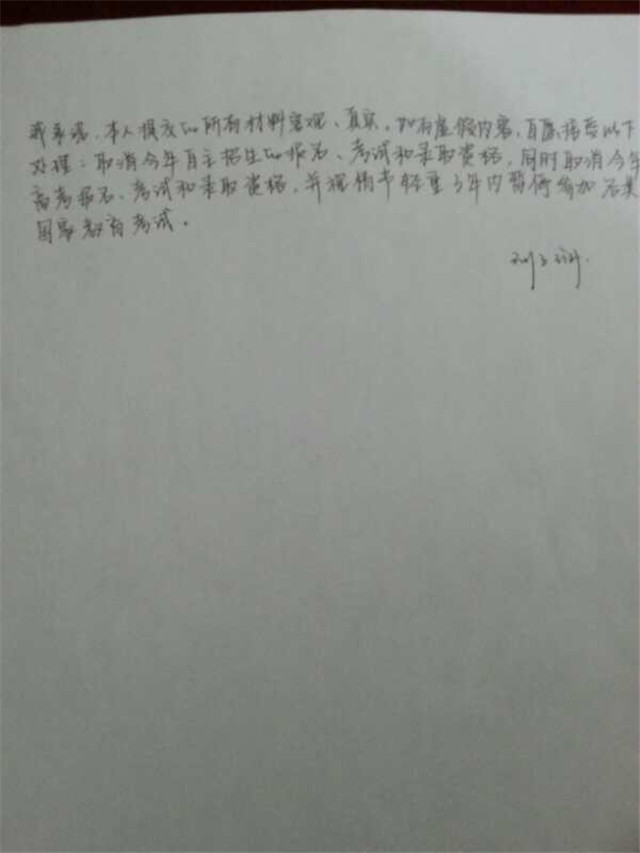 我承诺,本人提交的所有材料客观、真实,如有虚假内容,自愿接受以下
处理:取消今年自主招生的报名、考试和录取资格,同时取消今年
高考报名、考试和录取资格,并视情节轻重3年内暂停参加各类
国家教育考试。